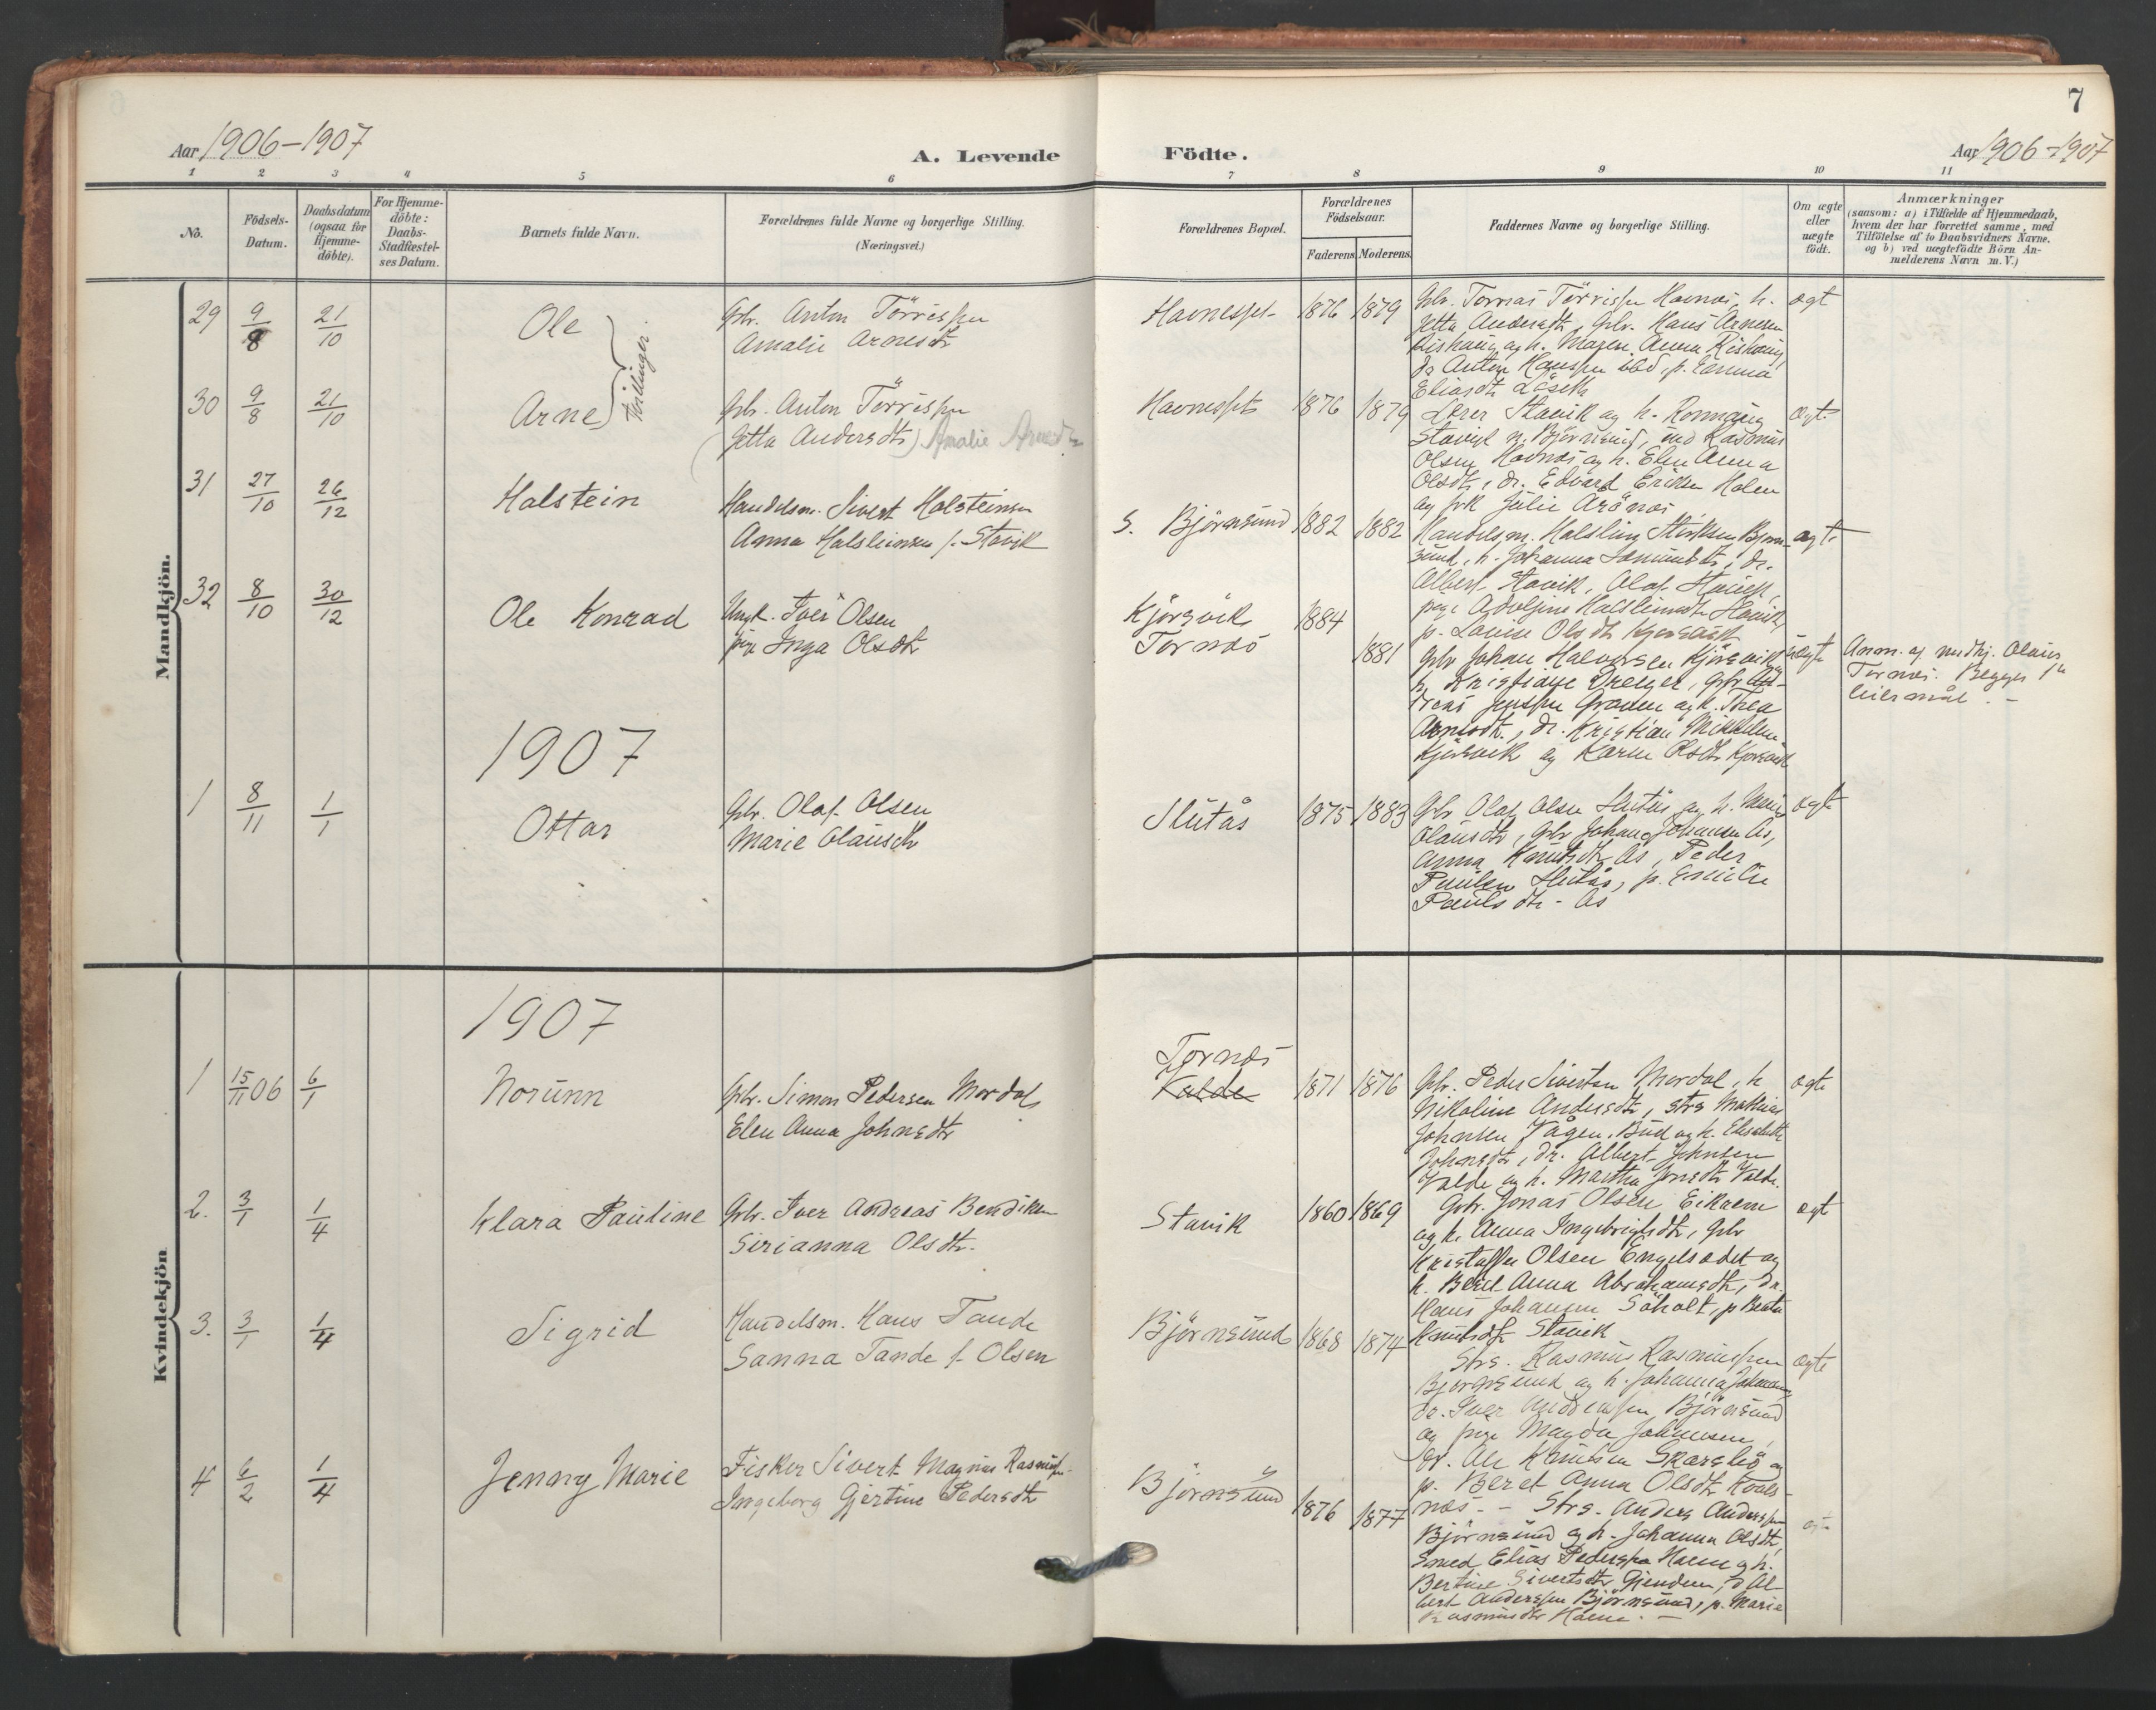 7
Aar 1906-1907
A. Levende Födte.
Aar 1906-1907
1 2 3 4 5 6 7 8 9 10 11
No.
Födsels-
Datum.
Daabsdatum
(ogsaa for
Hjemme-
döbte).
For Hjemme-
döbte:
Daabs-
Stadfæstel-
ses Datum.
Barnets fulde Navn.
Forældrenes fulde Navne og borgerlige Stilling.
(Næringsvei.)
Forældrenes Bopæl.
Forældrenes
Födselsaar.
Faderens. Moderens.
Faddernes Navne og borgerlige Stilling.
Om ægte
eller
uægte
födt.
Anmærkninger
(saasom: a) i Tilfælde af Hjemmedaab,
hvem der har forrettet samme, med
Tilföielse af to Daabsvidners Navne.
og b) ved uægtefödte Börn An-
melderens Navn m. V.)
Mandkjön.
29 9/8 21/10 Ole
Gbr. Anton Törrissen
Amalie Arnesdtr
Havnes 1876 1879
Gbr. Tomas Törrissen Havnæs, h.
Jetta Andersdtr, Gbr. Hans Arnesen
Anna
Eliasdtr
ægt
Tvillinger.
30 9/8 21/10 Arne
Gbr. Anton Törrissen
(Jetta Andersdtr) Amalie Arnesdtr
1876 1879
Stavik og h.
n. Björnsund, Rasmus
Olsen Havnæs og h. Elen Anna
Olsdtr, dr. Edvard Eriksen Holen
og frk Julie Arönæs
ægt.
31 27/10 26/12 Halstein
Handelsm. Sivert Halsteinsen
Anna Halsteinsen f. Stavik
S. Björnsund 1882 1882
Handelsm. Halstein Björn-
sund, h. Johanna dr.
Albert Stavik, Olaf
pige
p. Lovise Olsdtr
ægte
32 8/10 30/12 Ole Konrad
Ungk. Iver Olsen
pige Inga Olsdtr
Kjörsvik
Tornæs
1884
1881
Gbr Johan Halvorsen Kjörsvik
h. Kristiane
dreas Jenssen og h. Thea
Arnesdtr., dr. Kristian Mikkelsen
Kjörsvik og Karen Olsdtr Kjörsvik
uægte
Anm. af nedkj. Olaus
Tornæs. Begges 1ste
leiermål. -
1907
1 8/11 1/1 Ottar
Gbr. Olaf Olsen
Marie Olausdtr
Slutås 1875 1883
Gbr Olaf Olsen Slutås og h. Marie
Olausdtr, Gbr Johan Johansen Ås,
Anna Knutsdtr Ås, Peder
Paulsen Slutås, p. Emilie
Paulsdtr - Ås
ægte
Kvindekjön
1907
1 15/11 06 6/1 Norunn
Gbr. Simon Pedersen Mordal
Elen Anna Johnsdtr
Tornæs
Valde
1871 1876
Gbr. Peder Sivertsen Mordal, h.
Nikoline Andersdtr, strs Mathias
Johnsen Vågen, Bud og h. Elisabeth
Johnsdtr, dr. Albert Johnsen
Valde og h. Martha Jonsdtr Valde.
ægte
2. 3/1 1/4 Klara Pauline
Gbr. Iver Andreas Bendiksen
Sirianna Olsdtr.
Stavik 1860 1869
Gbr. Jonas Olsen Eikrem
og h. Anna Ingebrigtsdtr, Gbr
Kristoffer Olsen og
h. Berit Anna Abrahamsdtr, dr.
Hans Johansen Söholt, p Beata
Knutsdtr Stavik
ægt
3. 3/1 1/4 Sigrid
Handelsm. Hans Tande
Sanna Tande f. Olsen
Björnsund 1868 1874
Strs. Rasmus Rasmussen
Björnsund og h. Johanna
dr. Iver Björnsund
og pige Magda Johansen,
gr. Ole Knutsen og
p. Beret Anna Olsdtr
næs. -
ægte
4 6/2 1/4 Jenny Marie
Fisker Sivert Magnus Rasmussen
Ingeborg Gjertine Pedersdtr
Björnsund
1876 1877
Strs. Anders Anderssen
Björnsund og h. Johanna Olsdtr,
Smed Elias Pederssen Harm og h.
Bertine Sivertsdtr Gjendem, d Al-
bert Anderssen Björnsund, p. Marie
Rasmusdtr Harm. -